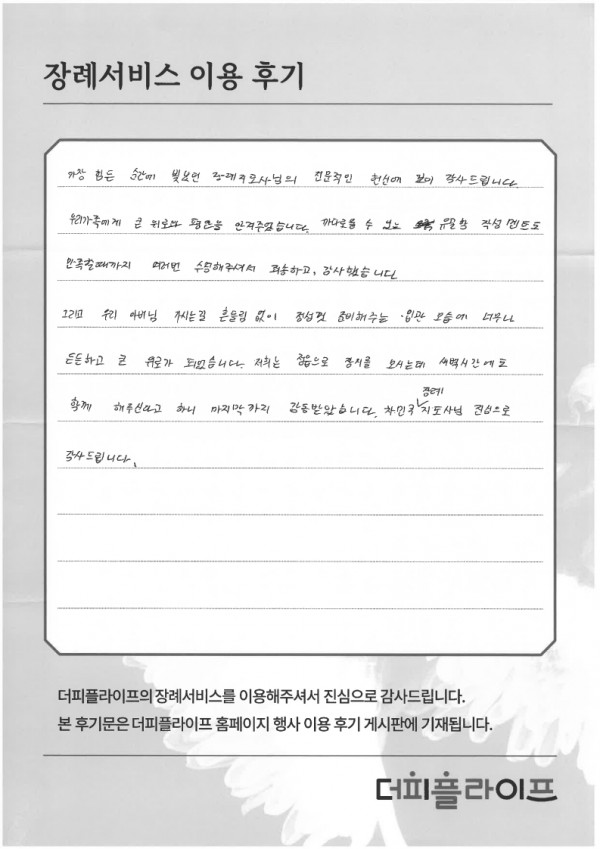 장례서비스 이용 후기
가장 힘든 순간에 빛났던 장례지도사님의 전문적인 헌신에 깊이 감사드립니다.
우리가족에게 큰 위로와 평안을 안겨주었습니다. 까다로울 수 있는 유골함 작성 멘트도
만족할때까지 여러번 수정해주셔서 죄송하고, 감사했습니다
그리고 우리 아버님 가시는길 흔들림 없이 정성껏 준비해주는 입관 모습에 너무나
든든하고 큰 위로가 되었습니다. 저희는 정읍으로 장지를 모시는데 새벽시간에도
함께 해주신다고 하니 마지막까지 감동받았습니다. 차민국 장례 지도사님 진심으로
감사드립니다.
더피플라이프의 장례서비스를 이용해주셔서 진심으로 감사드립니다.
본 후기문은 더피플라이프 홈페이지 행사 이용 후기 게시판에 기재됩니다.
더피플라이프